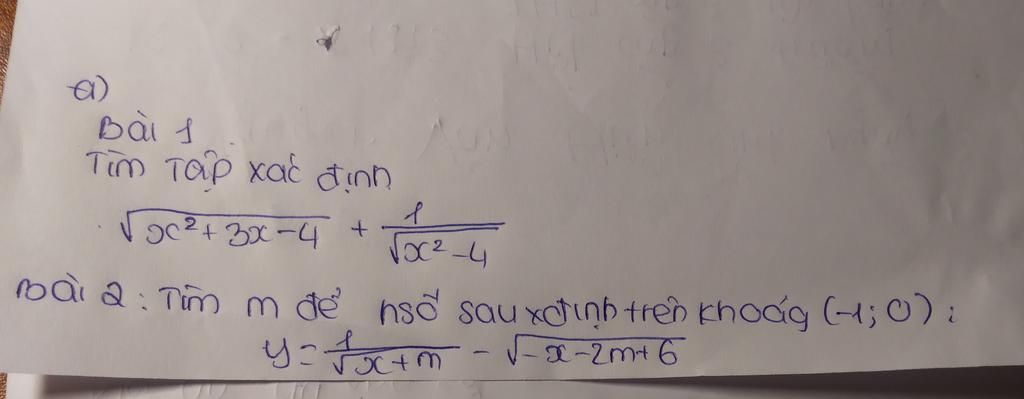 a)
Bài 1.
Tìm Tập xác định
√(x²+3x-4) + 1/√(x²-4)
Bài 2: Tìm m để hsố sau xđịnh trên khoảg (-1; 0):
y = 1/√(x+m) - √(-x-2m+6)